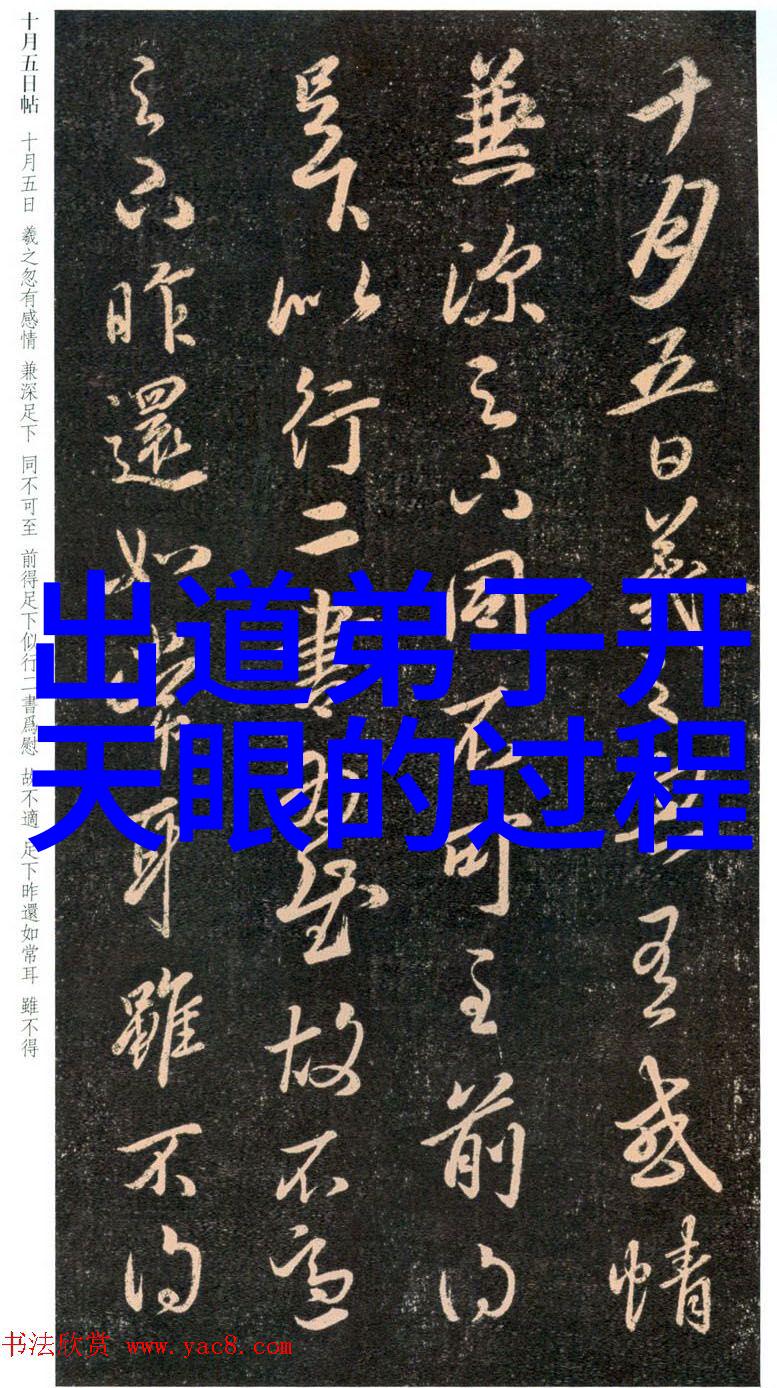 十月五日羲之忽有感情
兼深足下同不可至前得
足下以行二書为慰故不適
足下昨還如常耳雖不得
十月五日帖 十月五日 羲之忽有感情 兼深足下 同不可至 前得足下似行二書爲慰 故不適 足下昨還如常耳 雖不得
出道弟子开
天眼的过程
书法欣赏 www.yac8.com